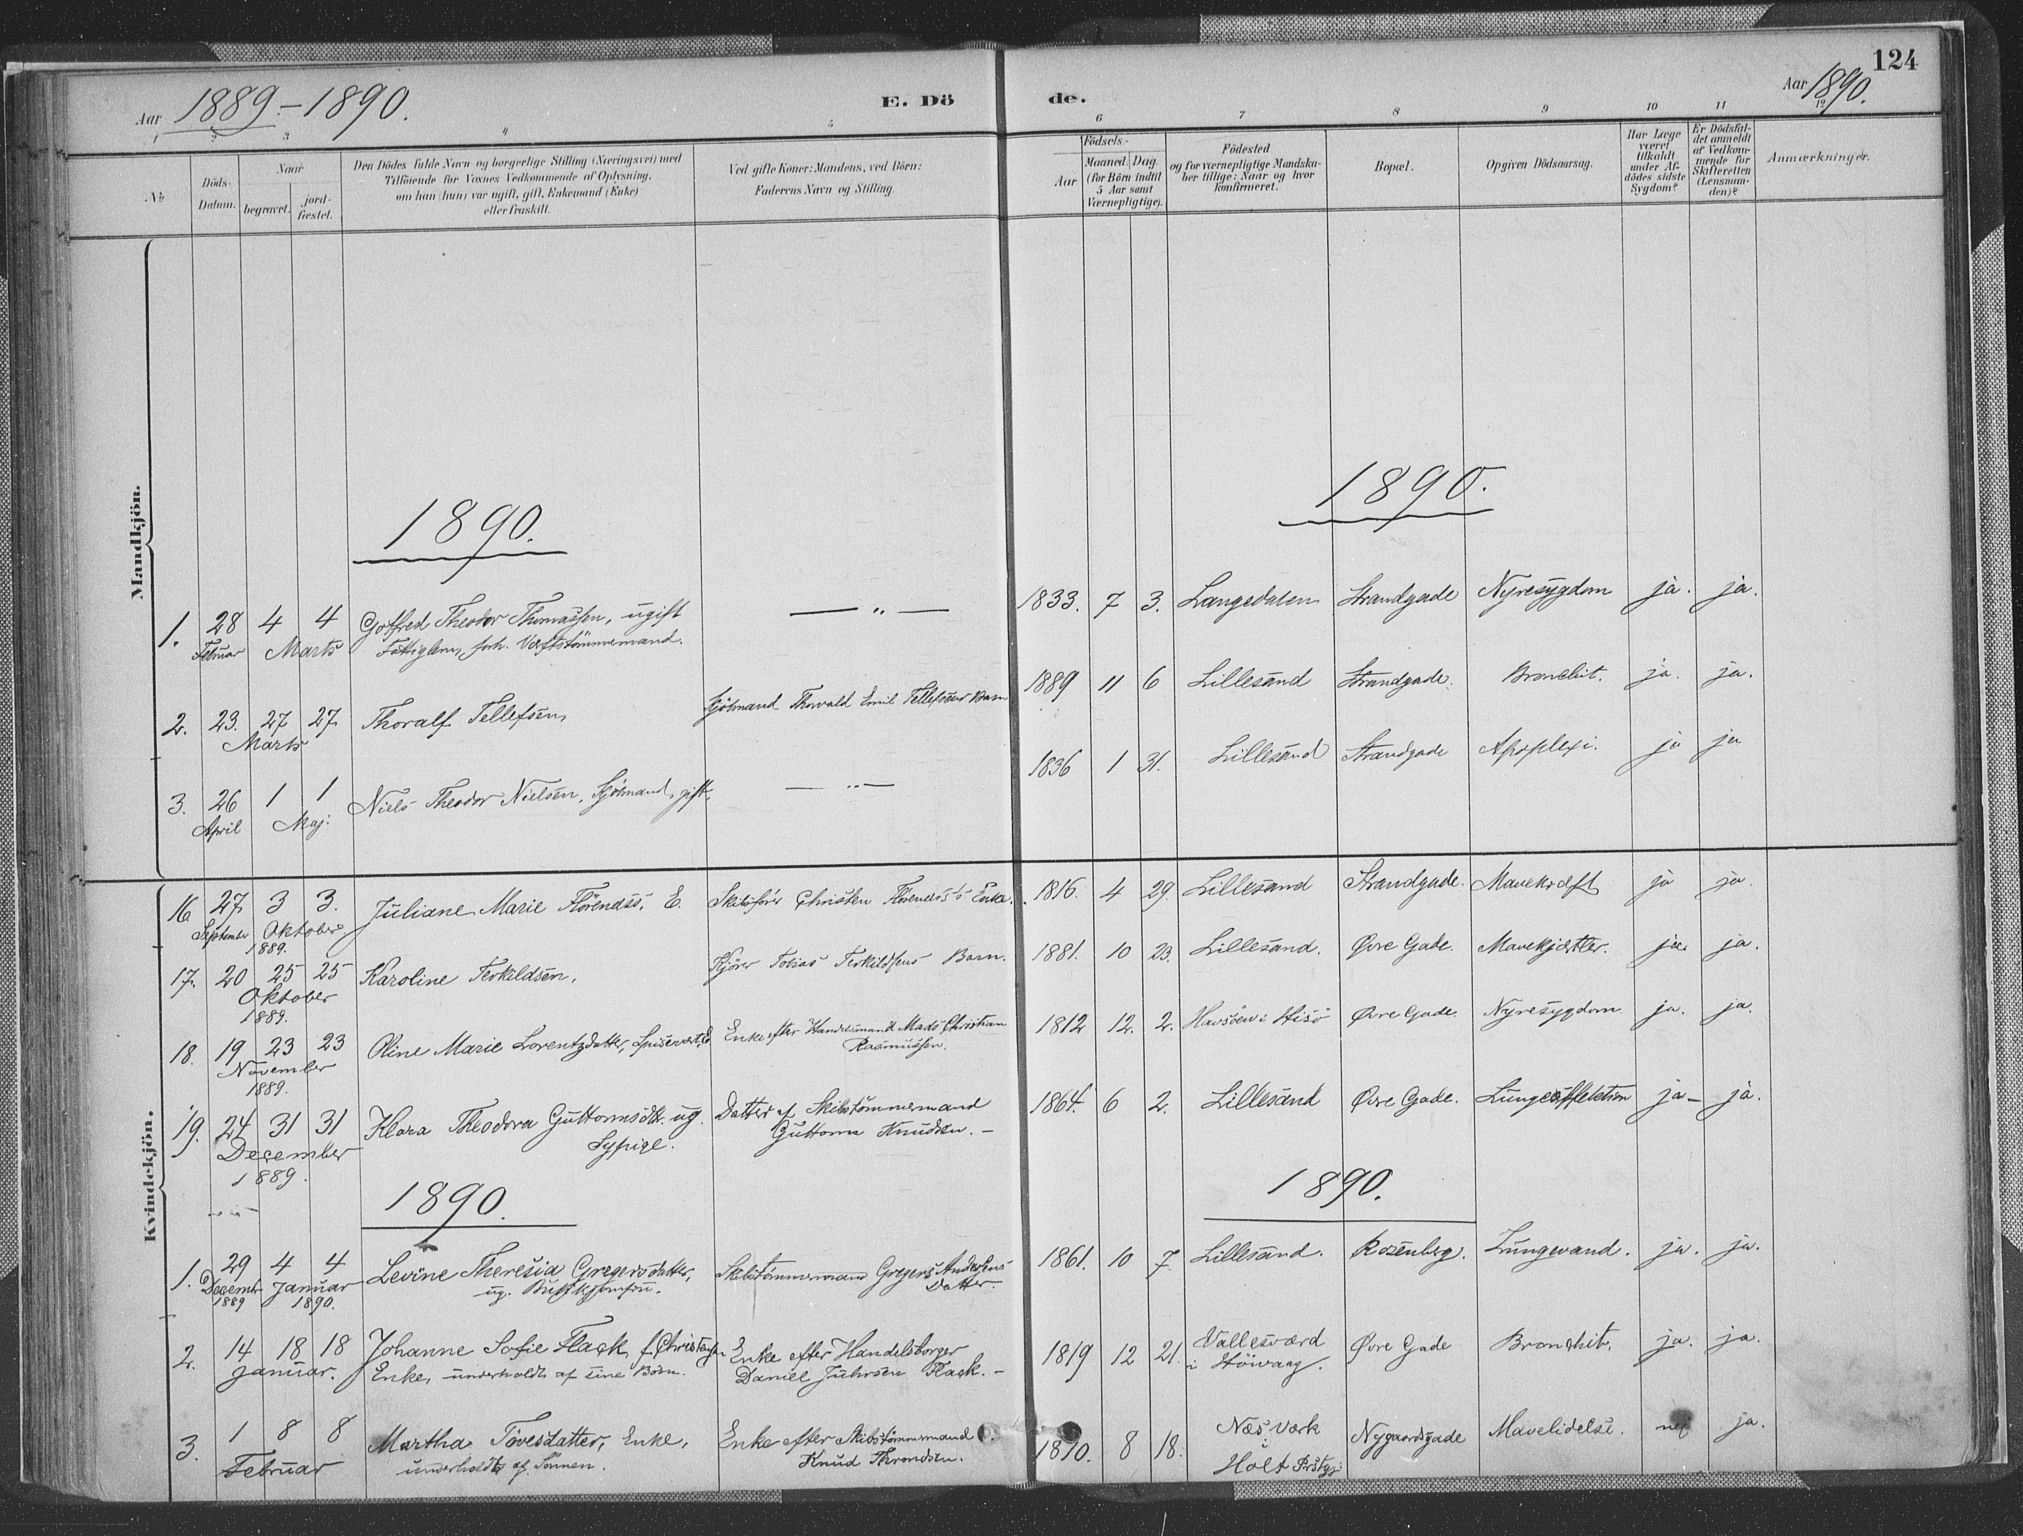 124
Aar 1889.-1890.
E. Dö
de.
Aar 1890.
1 2 3 4 5
6 7 8 9 10 11 12
No
Döds-Datum.
Naar
begravet.
jord-fæstet.
Den Dödes fulde Navn og borgerlige Stilling (Næringsvei) med
Tilföiende for Voxnes Vedkommende af Oplysning,
om han (hun) var ugift, gift, Enkemand (Enke)
eller fraskilt.
Ved gifte Koner: Mandens, ved Börn:
Faderens Navn og Stilling.
Födsels-
Aar
Maaned. Dag.
(for Börn indtil
5 Aar samt
Værnepligtige).
Födested
og for værnepligtige Mandska-
ber tillige: Naar og hvor
konfirmeret.
Bopæl.
Opgiven Dödsaarsag.
Har Læge
været
tilkaldt
under Af-
dödes sidste
Sygdom?
Er Dödsfal-
det anmeldt
af Vedkom-
mende for
Skifteretten
(Lensman-
den)?
Anmærkninger.
Mandkjön.
1890.
1890.
1. 28 Februar 4 4 Marts Gotfred Theodor Thomassen, ugift — „ — 1833. 7 3. Langedalen Strandgade Nyresygdom ja. ja.
Fattiglem, forh. Værftstømmermand.
2. 23. 27 27 Marts Thoralf Tellefsen, Sjømand Thorvald Emil Tellefsens Barn 1889 11 6 Lillesand Strandgade. Bronchit. ja. ja.
3. 26 April 1 1 Maj: Niels Theodor Nielsen, Sjømand, gift, — „ — 1836 1 31. Lillesand Strandgade Apoplexi. ja ja
Kvindekjön.
16 27 September 3 3. Oktober 1889. Juliane Marie Flørenæss, E. Skibsfører Christen Flørenæss's Enke. 1816. 4 29. Lillesand Strandgade. Mavekræft ja ja.
17. 20 25 25 Oktober 1889. Karoline Terkildsen, Kjører Tobias Terkildsens Barn. 1881. 10 23. Lillesand. Øvre Gade. ja. ja.
18. 19 23 23 November 1889. Oline Marie Lorentzdatter, Spisevært, E Enke efter Handelsmand Mads Christian
Rasmussen. 1812 12. 2. i Hisø Øvre Gade. Nyresygdom ja. ja.
19. 24 31 31 December 1889. Klara Theodora Guttormsdtr. ug. Sypige. Datter af Skibstømmermand
Guttorm Knudsen. — 1864. 6 2. Lillesand Øvre Gade. Lungeaffektion ja — ja.
1890.
1890.
1. 29 December 1889 4 4 Januar 1890. Levine Theresia Gregersdatter, Skibstømmermand Gregers Andersens
Datter. 1861. 10 7 Lillesand. Rosenberg. Lungevand. ja. ja.
2. 14 18 18 Januar. Johanne Sofie Flack, f. Christensen Enke efter Handelsborger 1819 12 21. Vallesværd
i Høivaag. Øvre Gade Bronchit. ja. ja.
Enke, underholdt af sine Børn. Daniel Juhrsen Flack. —
3. 1 8 8 Februar Martha Tovesdatter, Enke, Enke efter Skibstømmermand 1810. 8 18. Næs Værk
i Holt Prstgj. Nygaardsgade Mavelidelse. nej ja.
underholdt af Sønnen. Knud Throndsen.